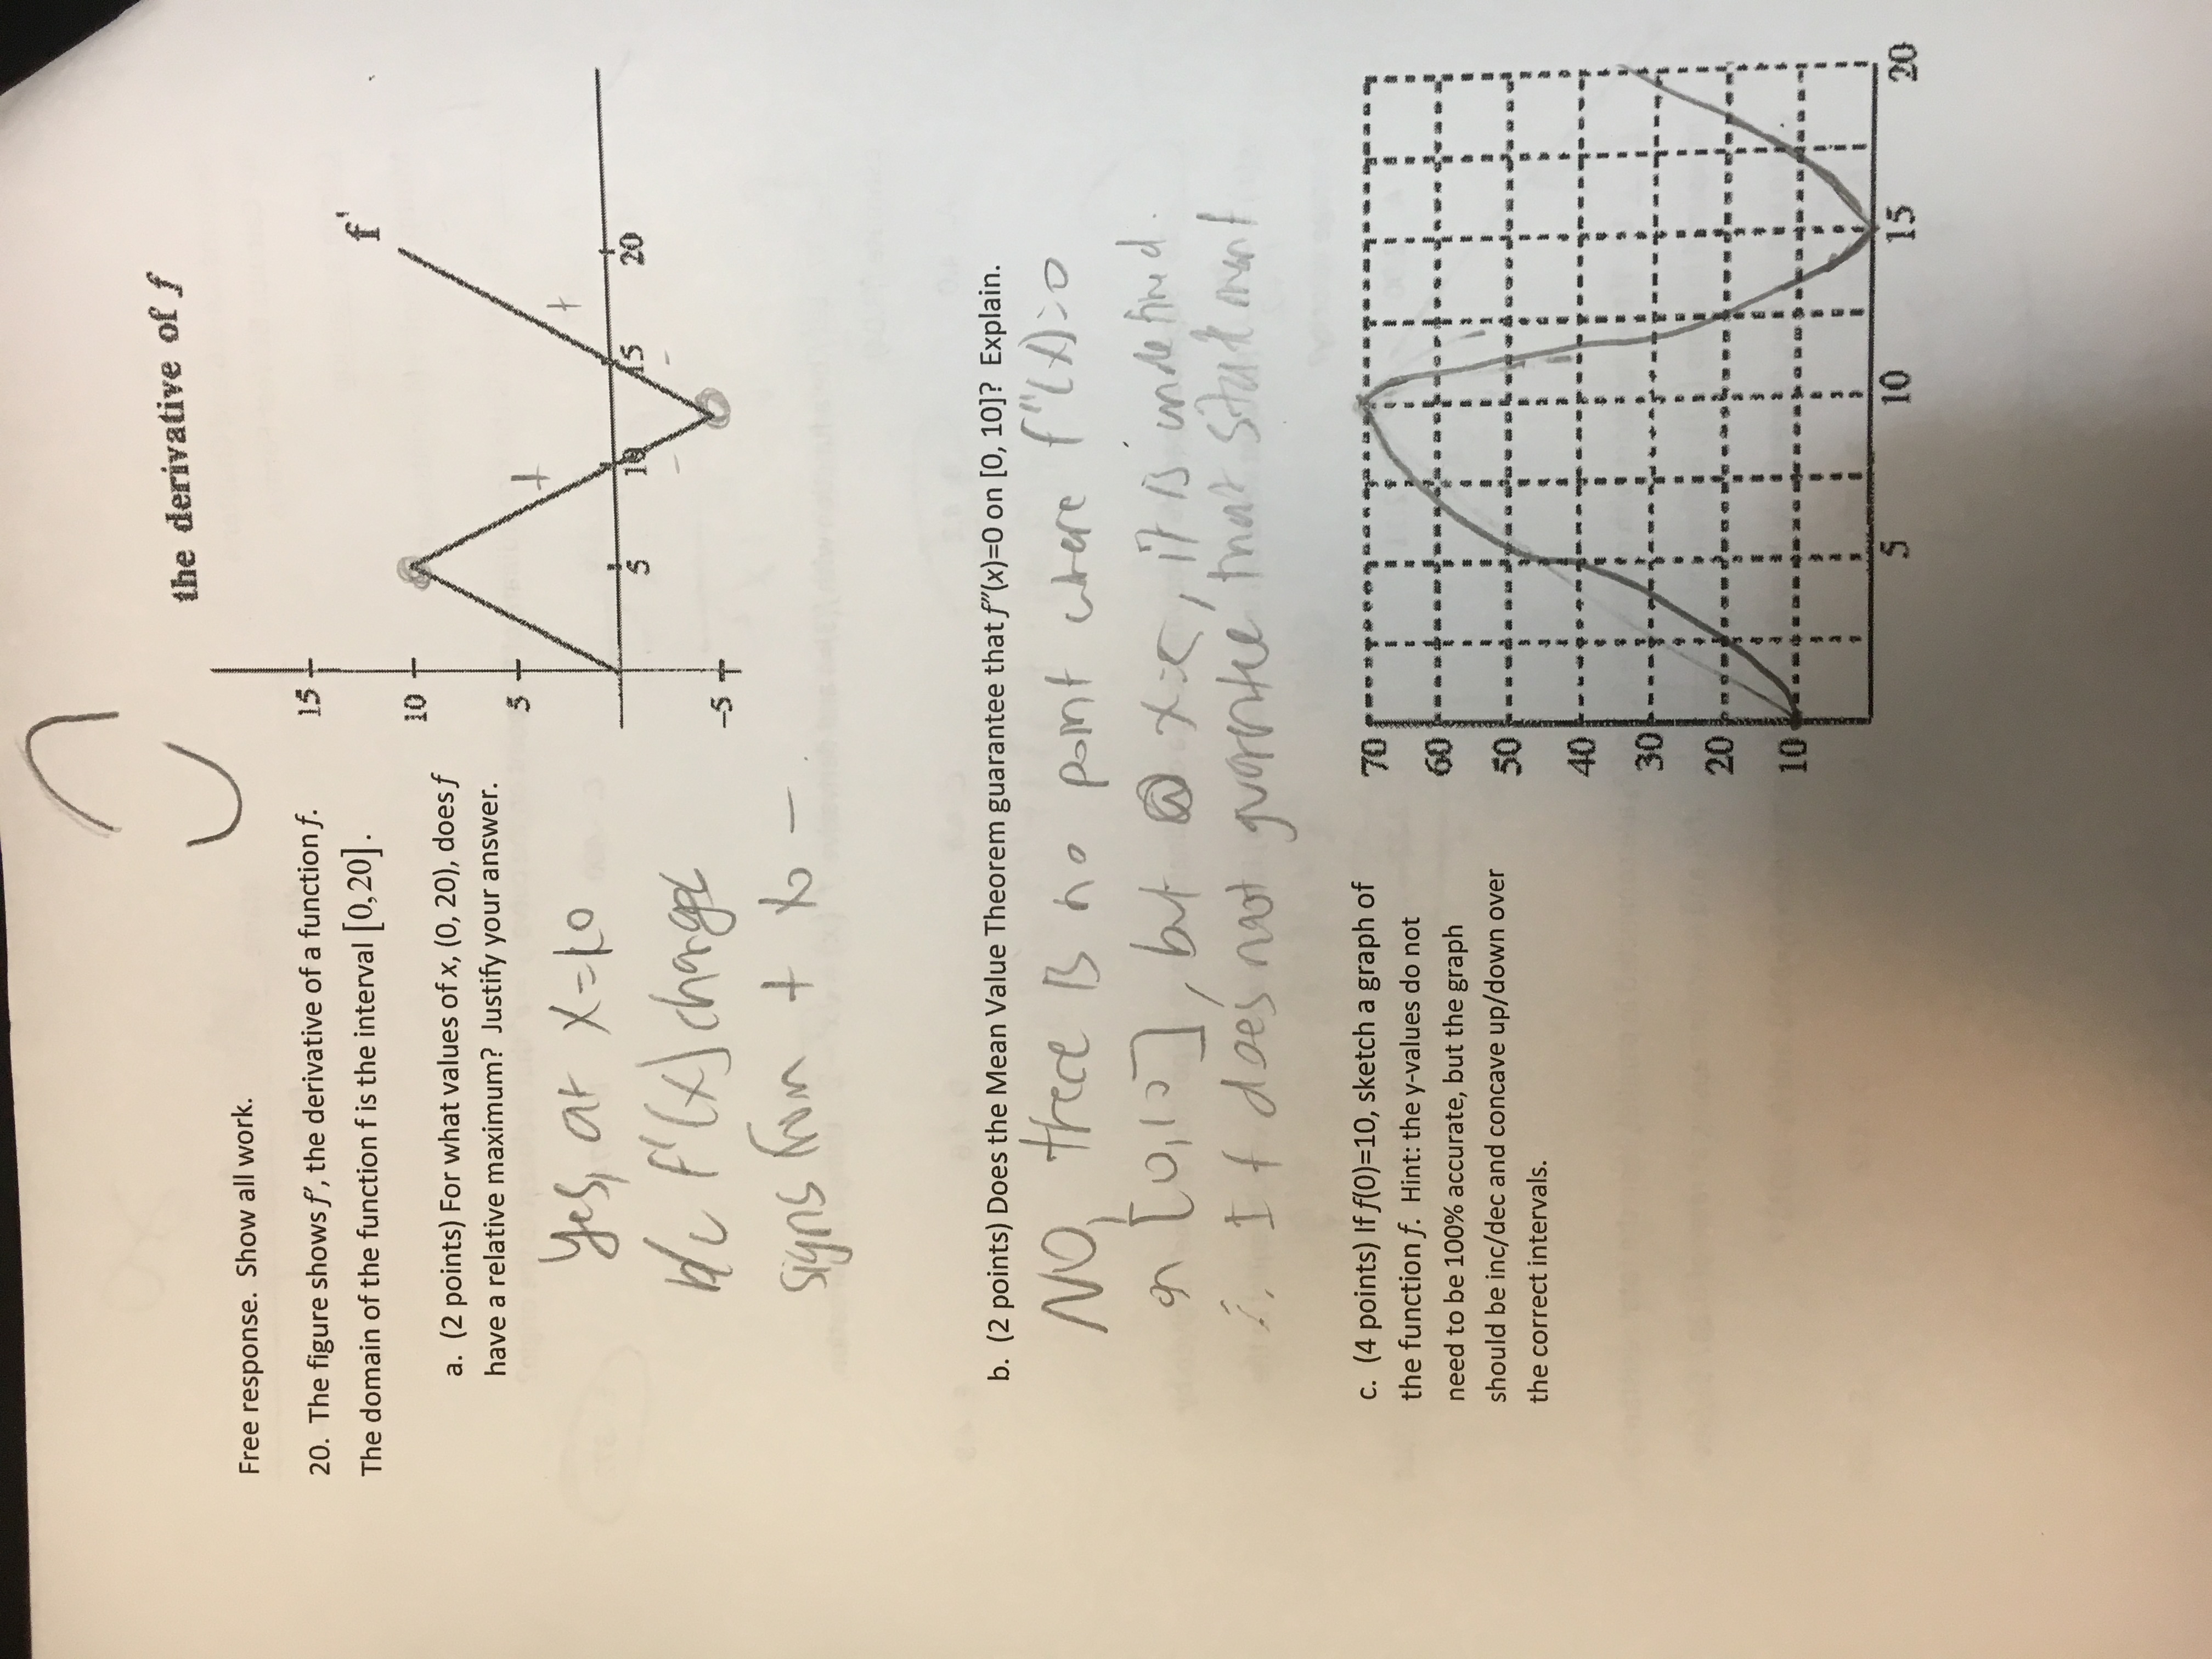 the derivative of f
Free response. Show all work.
20. The figure shows f′, the derivative of a function f.
The domain of the function f is the interval [0,20].
a. (2 points) For what values of x, (0, 20), does f
have a relative maximum? Justify your answer.
15
10
5
-5
5
10
15
20
f'
+
+
-
-
Yes, at x=10
b/c f'(x) changes
signs from + to -
b. (2 points) Does the Mean Value Theorem guarantee that f″(x)=0 on [0, 10]? Explain.
NO, there is no point where f"(x)=0
on [0,10], but @ x=5, it is undefined.
∴ It does not guarantee that statement
c. (4 points) If f(0)=10, sketch a graph of
the function f. Hint: the y-values do not
need to be 100% accurate, but the graph
should be inc/dec and concave up/down over
the correct intervals.
70
60
50
40
30
20
10
5
10
15
20